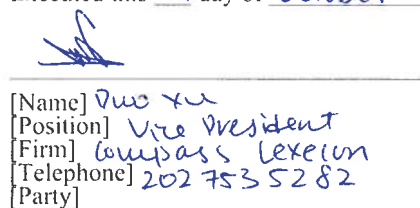 day of October
[Name] Duo Xu
[Position] Vice President
[Firm] Compass Lexecon
[Telephone] 202 753 5282
[Party]